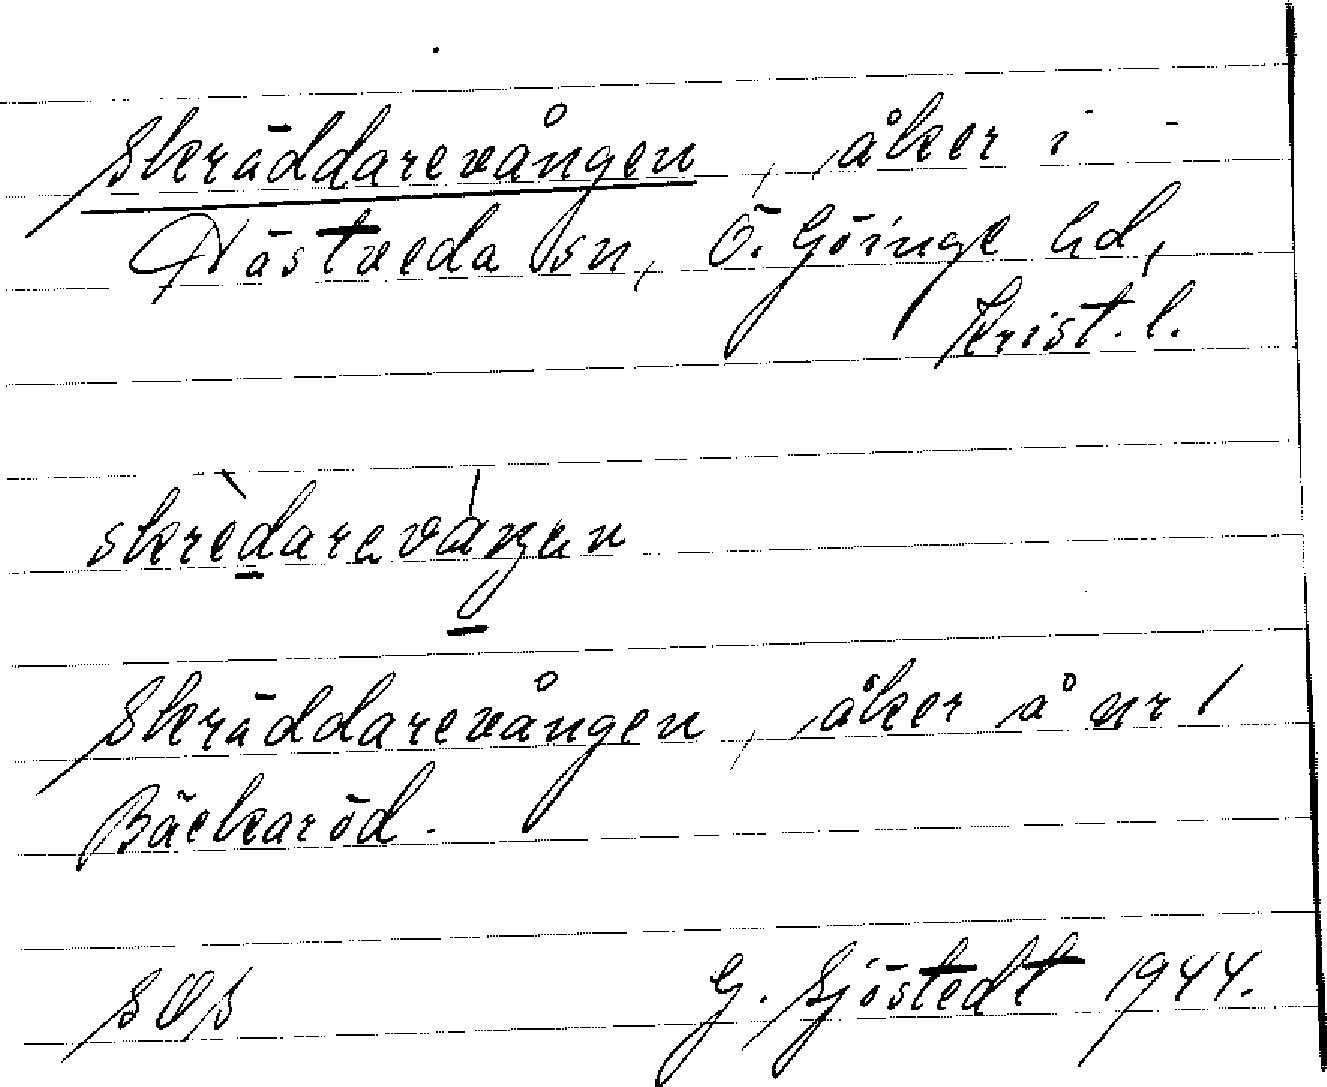 Skräddarevången, åker i
Nästveda sn, Ö. Göinge hd,
Krist. l.
skrèdareváŋen
Skräddarevången, åker å nr 1
Bäckaröd.
SOS G. Sjöstedt 1944.